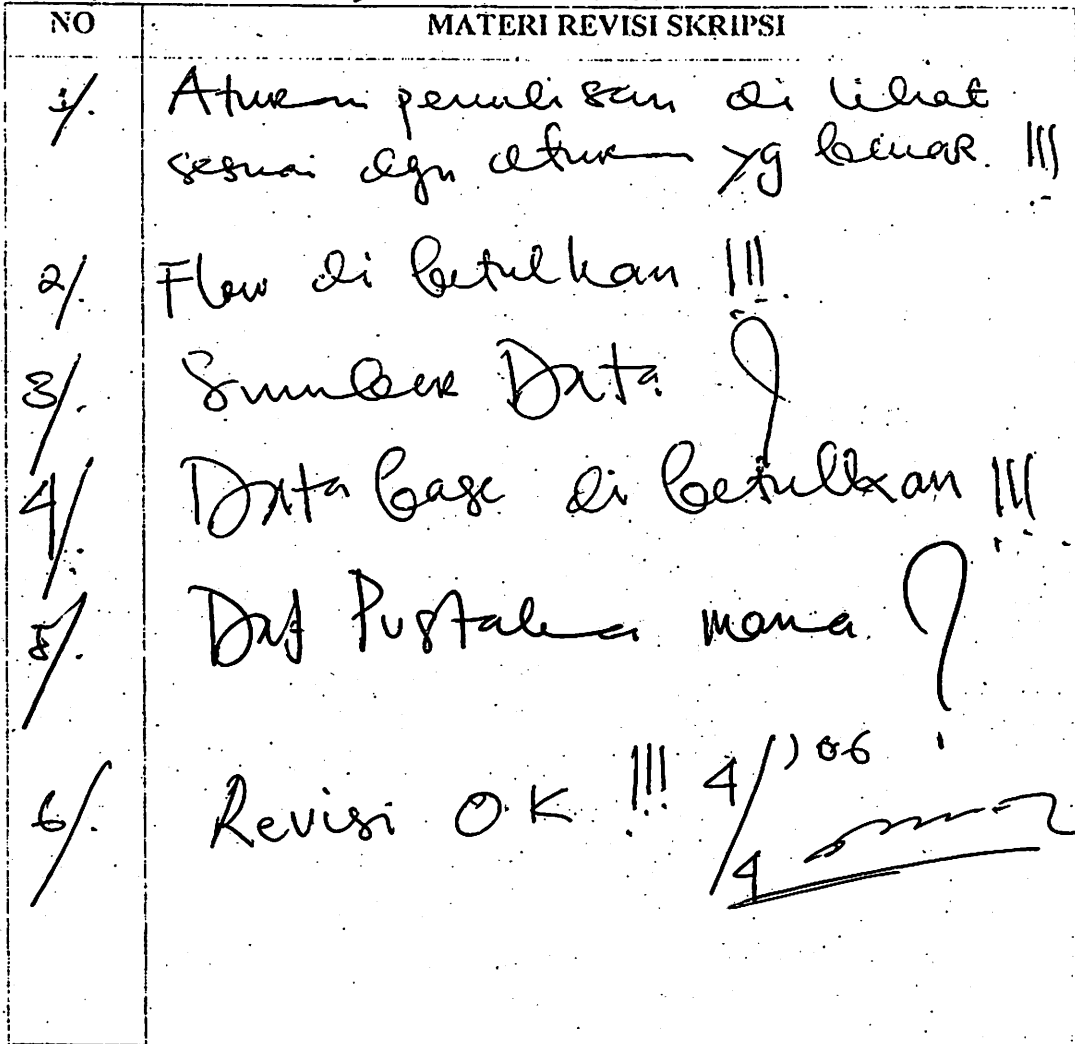 NO MATERI REVISI SKRIPSI
1/. Aturan penulisan di lihat
sesuai dgn aturan yg benar. !!!
2/. Flow di betulkan !!!
3/. Sumber Data ?
4/. Data base di betulkan !!!
5/. Daf Pustaka mana ?
6/. Revisi OK !!! 4/4 '06